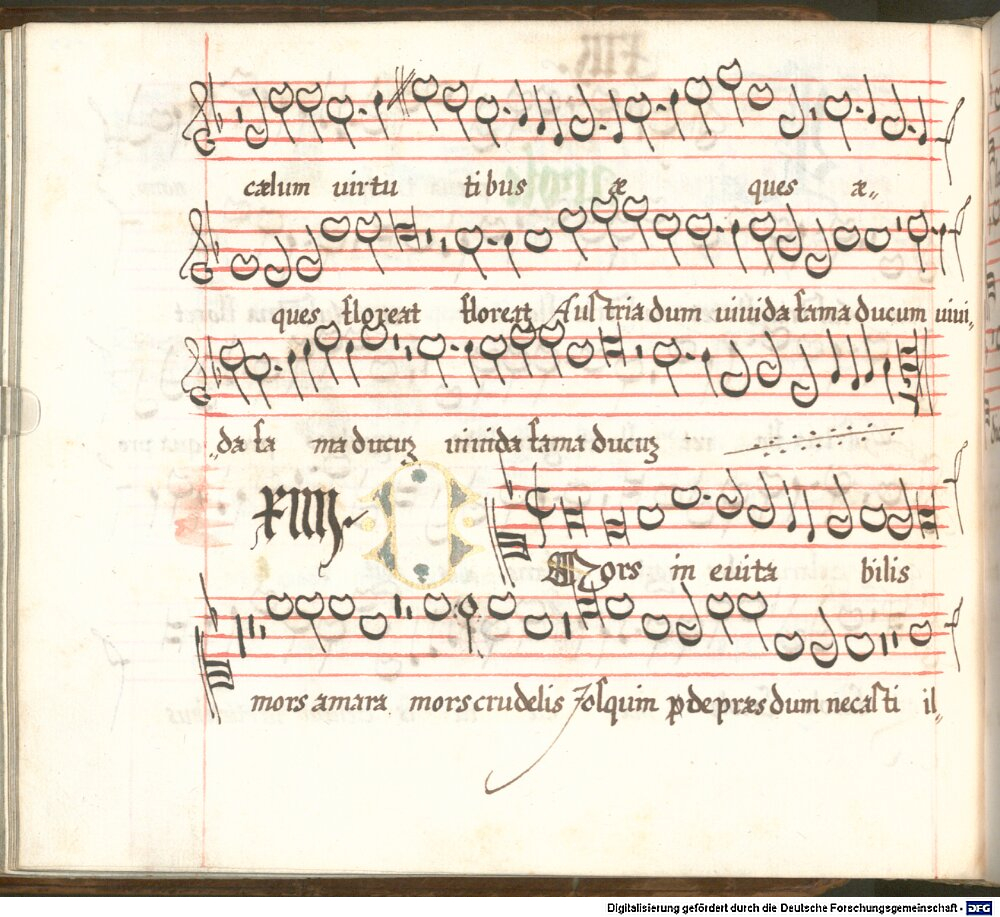 cælum uirtu tibus æ ques æ„
ques floreat floreat Austria dum uiuida fama ducum uiui„
da fa ma ducuʒ uiuida fama ducuʒ
XIIIJ O Mors in euita bilis
mors amara mors crudelis Josquim dum necasti il„
Digitalisierung gefördert durch die Deutsche Forschungsgemeinschaft - DFG